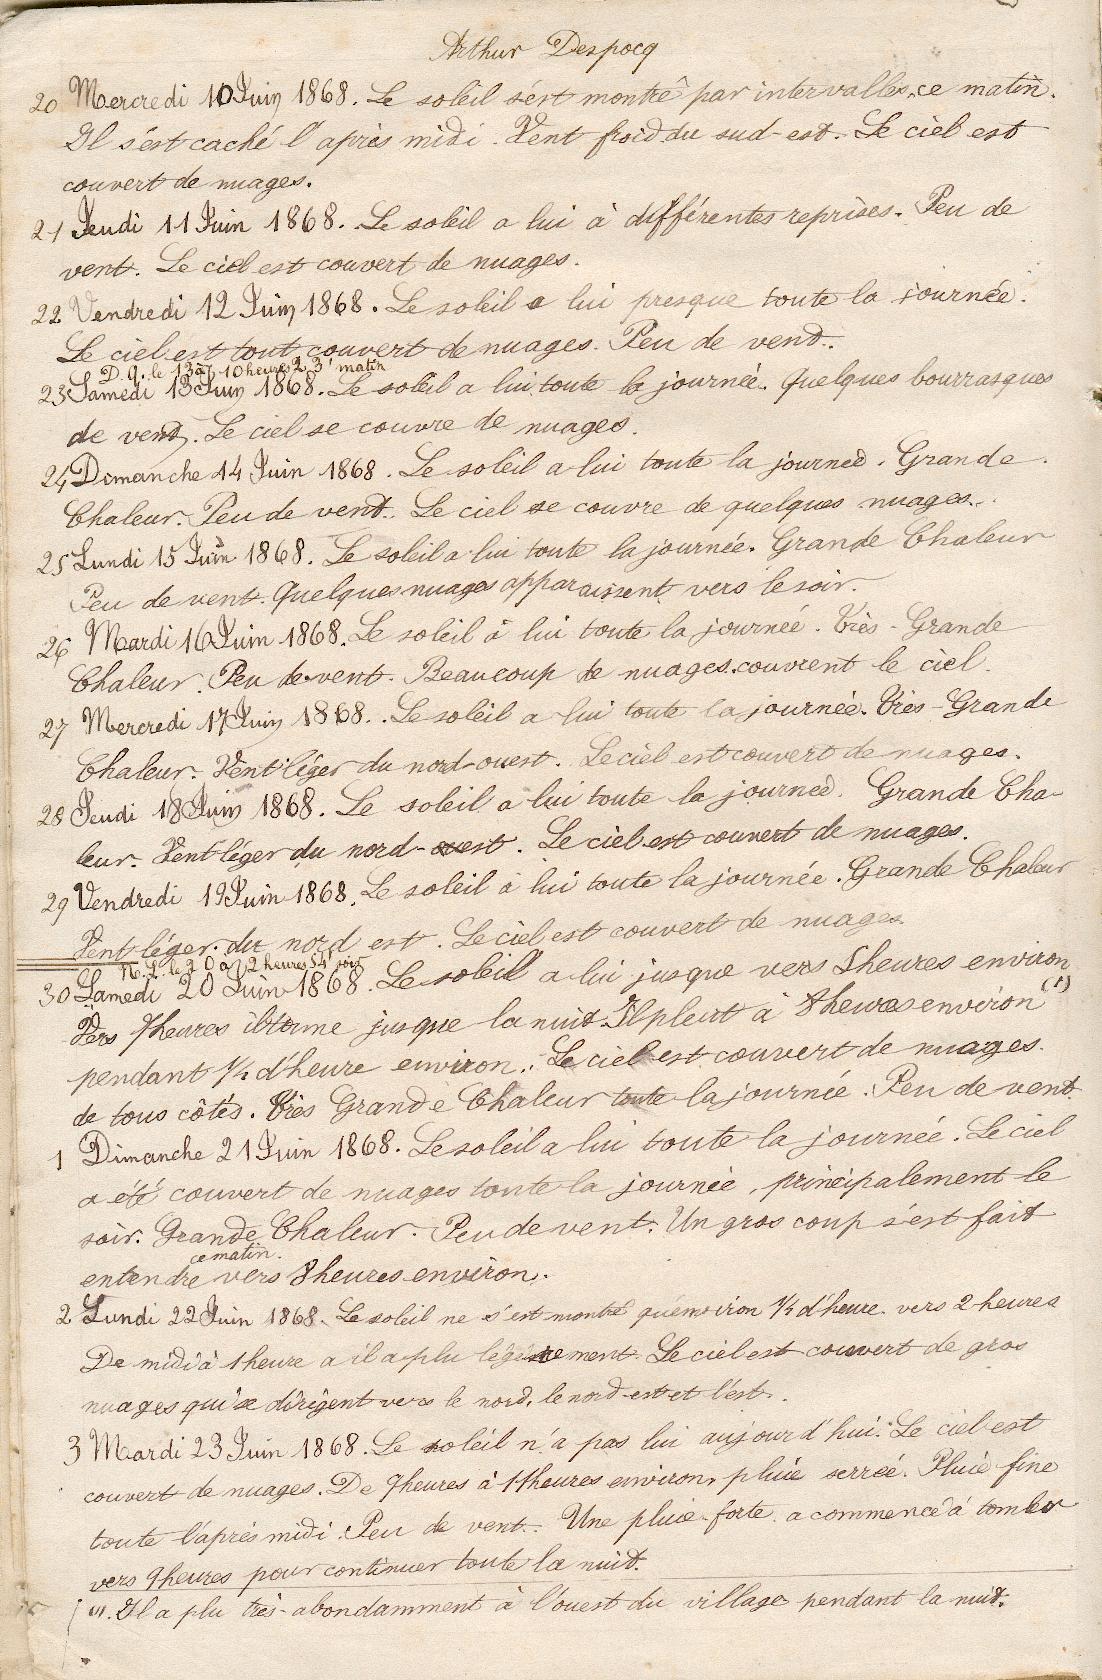 Arthur Despocq
20 Mercredi 10 Juin 1868. Le soleil s'est montré par intervalles, ce matin.
Il s'est caché l'après midi. Vent froid du sud-est. Le ciel est
couvert de nuages.
21 Jeudi 11 Juin 1868. Le soleil a lui à différentes reprises. Peu de
vent. Le ciel est couvert de nuages.
22 Vendredi 12 Juin 1868. Le soleil a lui presque toute la journée.
Le ciel est tout couvert de nuages. Peu de vent.
D. Q. le 13 à 10 heures 23' matin
23 Samedi 13 Juin 1868. Le soleil a lui toute la journée. Quelques bourrasques
de vent. Le ciel se couvre de nuages.
24 Dimanche 14 Juin 1868. Le soleil a lui toute la journée. Grande
Chaleur. Peu de vent. Le ciel se couvre de quelques nuages.
25 Lundi 15 Juin 1868. Le soleil a lui toute la journée. Grande Chaleur
Peu de vent. Quelques nuages apparaissent vers le soir.
26 Mardi 16 Juin 1868. Le soleil à lui toute la journée. Très-Grande
Chaleur. Peu de vent. Beaucoup de nuages couvrent le ciel.
27 Mercredi 17 Juin 1868. Le soleil a lui toute la journée. Très-Grande
Chaleur. Vent léger du nord-ouest. Le ciel est couvert de nuages.
28 Jeudi 18 Juin 1868. Le soleil a lui toute la journée. Grande Cha-
leur. Vent léger du nord-ouest. Le ciel est couvert de nuages.
29 Vendredi 19 Juin 1868. Le soleil à lui toute la journée. Grande Chaleur
Vent léger du nord est. Le ciel est couvert de nuages.
N. L. le 20 à 2 heures 54' soir
30 Samedi 20 Juin 1868. Le soleil a lui jusque vers 5 heures environ
Vers 7 heures il tonne jusque la nuit. Il pleut à 8 heures environ (1)
pendant 1/4 d'heure environ. Le ciel est couvert de nuages
de tous côtés. Très Grande Chaleur toute la journée. Peu de vent.
1 Dimanche 21 Juin 1868. Le soleil a lui toute la journée. Le ciel
a été couvert de nuages toute la journée, principalement le
soir. Grande Chaleur. Peu de vent. Un gros coup s'est fait
ce matin.
entendre vers 8 heures environ.
2 Lundi 22 Juin 1868. Le soleil ne s'est montré qu'environ 1/4 d'heure vers 2 heures
De midi à 1 heure a il a plu légèrement. Le ciel est couvert de gros
nuages qui se dirigent vers le nord, le nord-est et l'est.
3 Mardi 23 Juin 1868. Le soleil n'a pas lui aujourd'hui. Le ciel est
couvert de nuages. De 9 heures à 11 heures environ, pluie serrée. Pluie fine
toute l'après midi. Peu de vent. Une pluie forte a commencé à tomber
vers 9 heures pour continuer toute la nuit.
(1). Il a plu très-abondamment à l'ouest du village pendant la nuit.